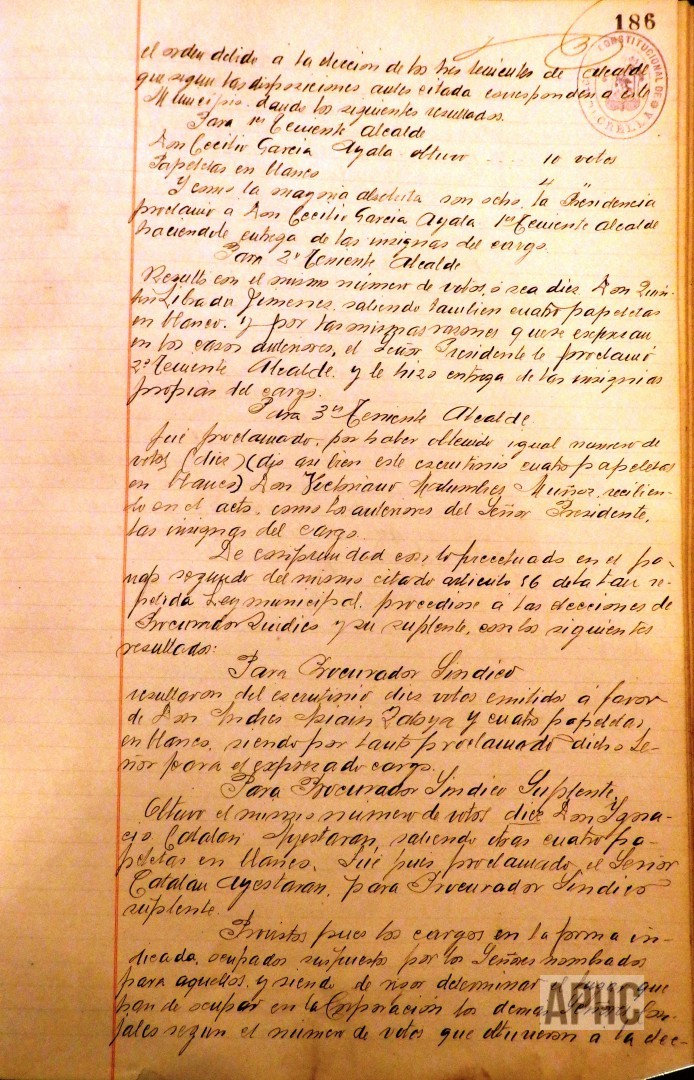 186
CONSTITUCIONAL DE
CORELLA
el orden debido á la elección de los tres tenientes de Alcalde
que segun las disposiciones antes citada corresponden a este
Municipio. dando los siguientes resultados.
Para 1er Teniente Alcalde
Don Cecilio Garcia Ayala obtuvo ... 10 votos
Papeletas en blanco 4 "
Y como la mayoria absoluta son ocho, la Presidencia
proclamó a Don Cecilio Garcia Ayala 1er Teniente Alcalde
haciendole entrega de las insignias del cargo.
Para 2º Teniente Alcalde
Resultó con el mismo número de votos, ó sea diez Don Quin-
tin Libada Jimenez. saliendo tambien cuatro papeletas
en blanco. Y por las mismas razones que se expresan
en los casos anteriores, el Señor Presidente le proclamó
2º Teniente Alcalde y le hizo entrega de las insignias
propias del cargo.
Para 3er Teniente Alcalde.
Fué proclamado, por haber obtenido igual número de
votos (diez) (dió asi bien este escrutinio cuatro papeletas
en blanco) Don Victoriano Malumbres Muñoz. recibien-
do en el acto, como los anteriores del Señor Presidente,
las insignas del cargo.
De conformidad con lo preceptuado en el pa-
rrafo segundo del mismo citado articulo 56 de la tan re-
petida Ley municipal. procediose á las elecciones de
Procurador Sindico y su suplente, con los siguientes
resultados:
Para Procurador Sindico
resultaron del escrutinio diez votos emitidos á favor
de Don Andres Zaloya y cuatro papeletas
en blanco, siendo por tanto proclamado dicho Se-
ñor para el expresado cargo.
Para Procurador Sindico Suplente.
Obtuvo el mismo número de votos diez Don Igna-
cio Catalan Ayestaran, saliendo otras cuatro pa-
peletas en blanco. Fué pues proclamado, el Señor
Catalan Ayestaran, para Procurador Sindico
suplente.
Provistos pues los cargos en la forma in-
dicada, ocupados sus puestos por los Señores nombrados
para aquellos, y siendo de rigor determinar que
han de ocupar en la Corporación los demas Con-
jales segun el número de votos que obtuvieron a la elec-
APHC